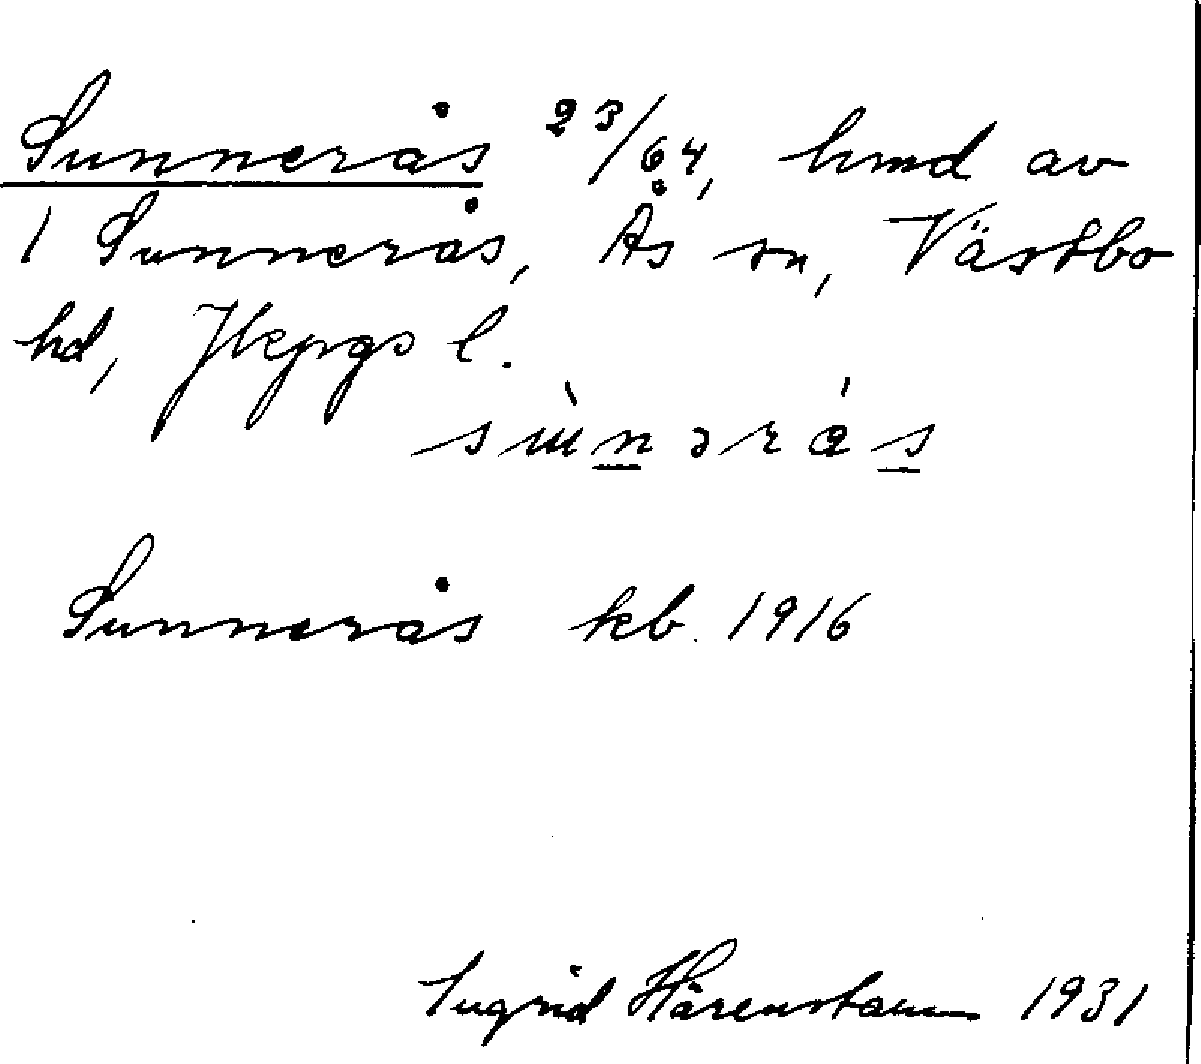 Sunnerås 23/64, hmd av
1 Sunnerås, Ås sn, Västbo
hd, Jkpgs l.
sɯ̀nərás
Sunnerås kb. 1916
Ingrid Härenstam 1931